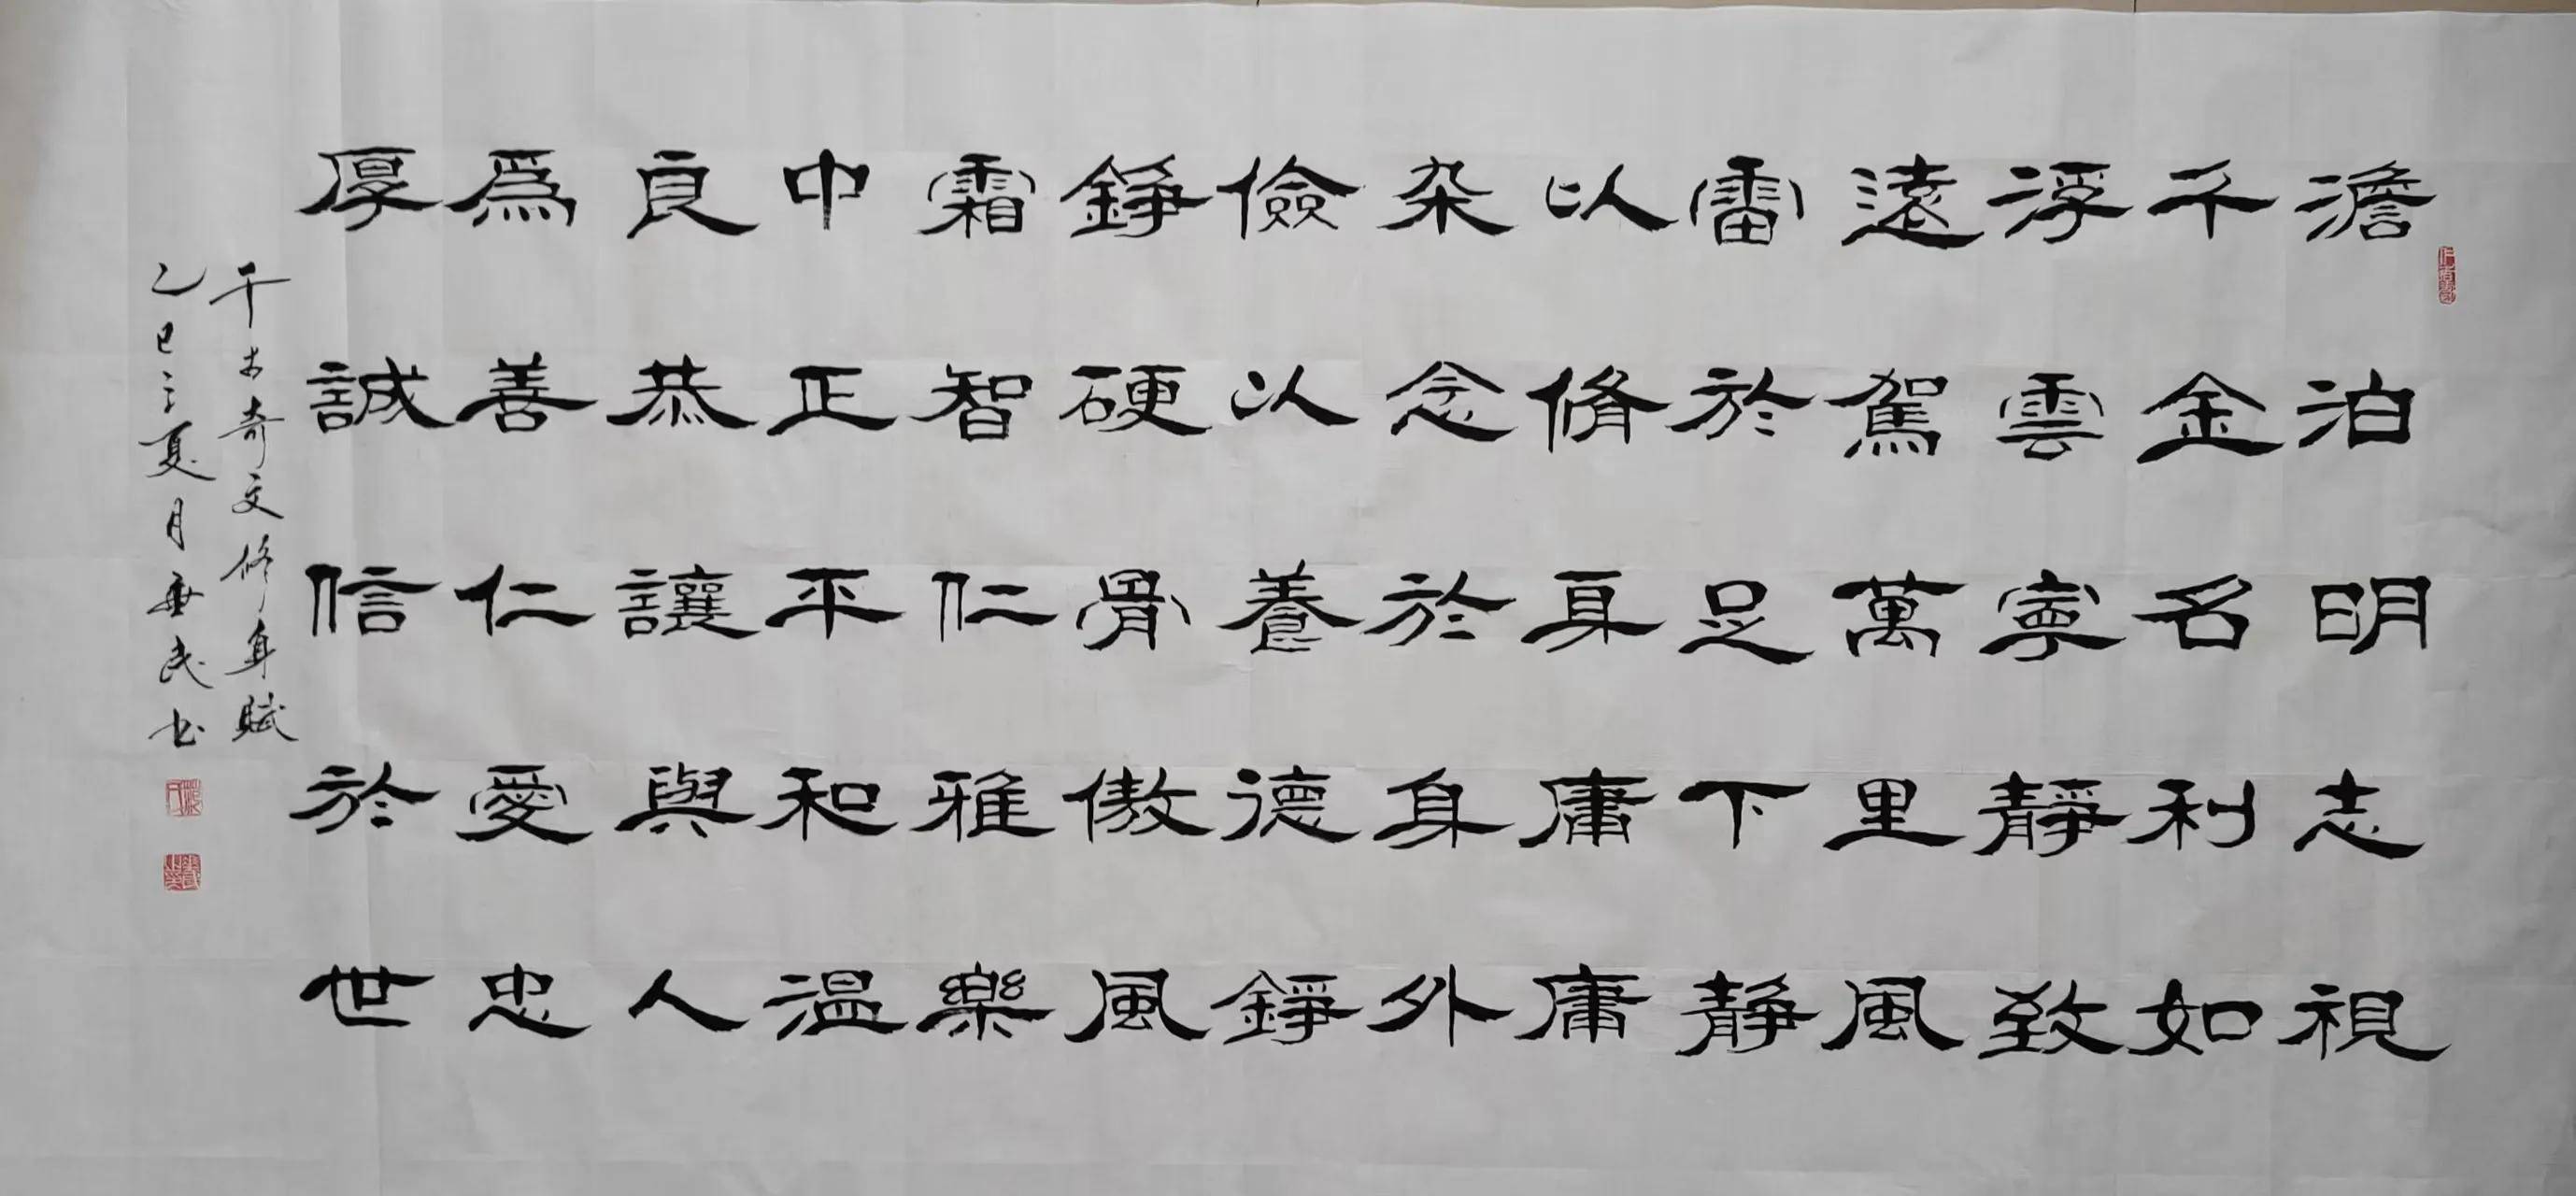 澹泊明志視
千金名利如
浮雲寧靜致
遠駕萬里風
雷於足下静
以脩身庸庸
杂念於身外
儉以養德錚
錚硬骨傲風
霜智仁雅樂
中正平和温
良恭讓與人
爲善仁愛忠
厚誠信於世
千古奇文修身賦
乙巳之夏月民书